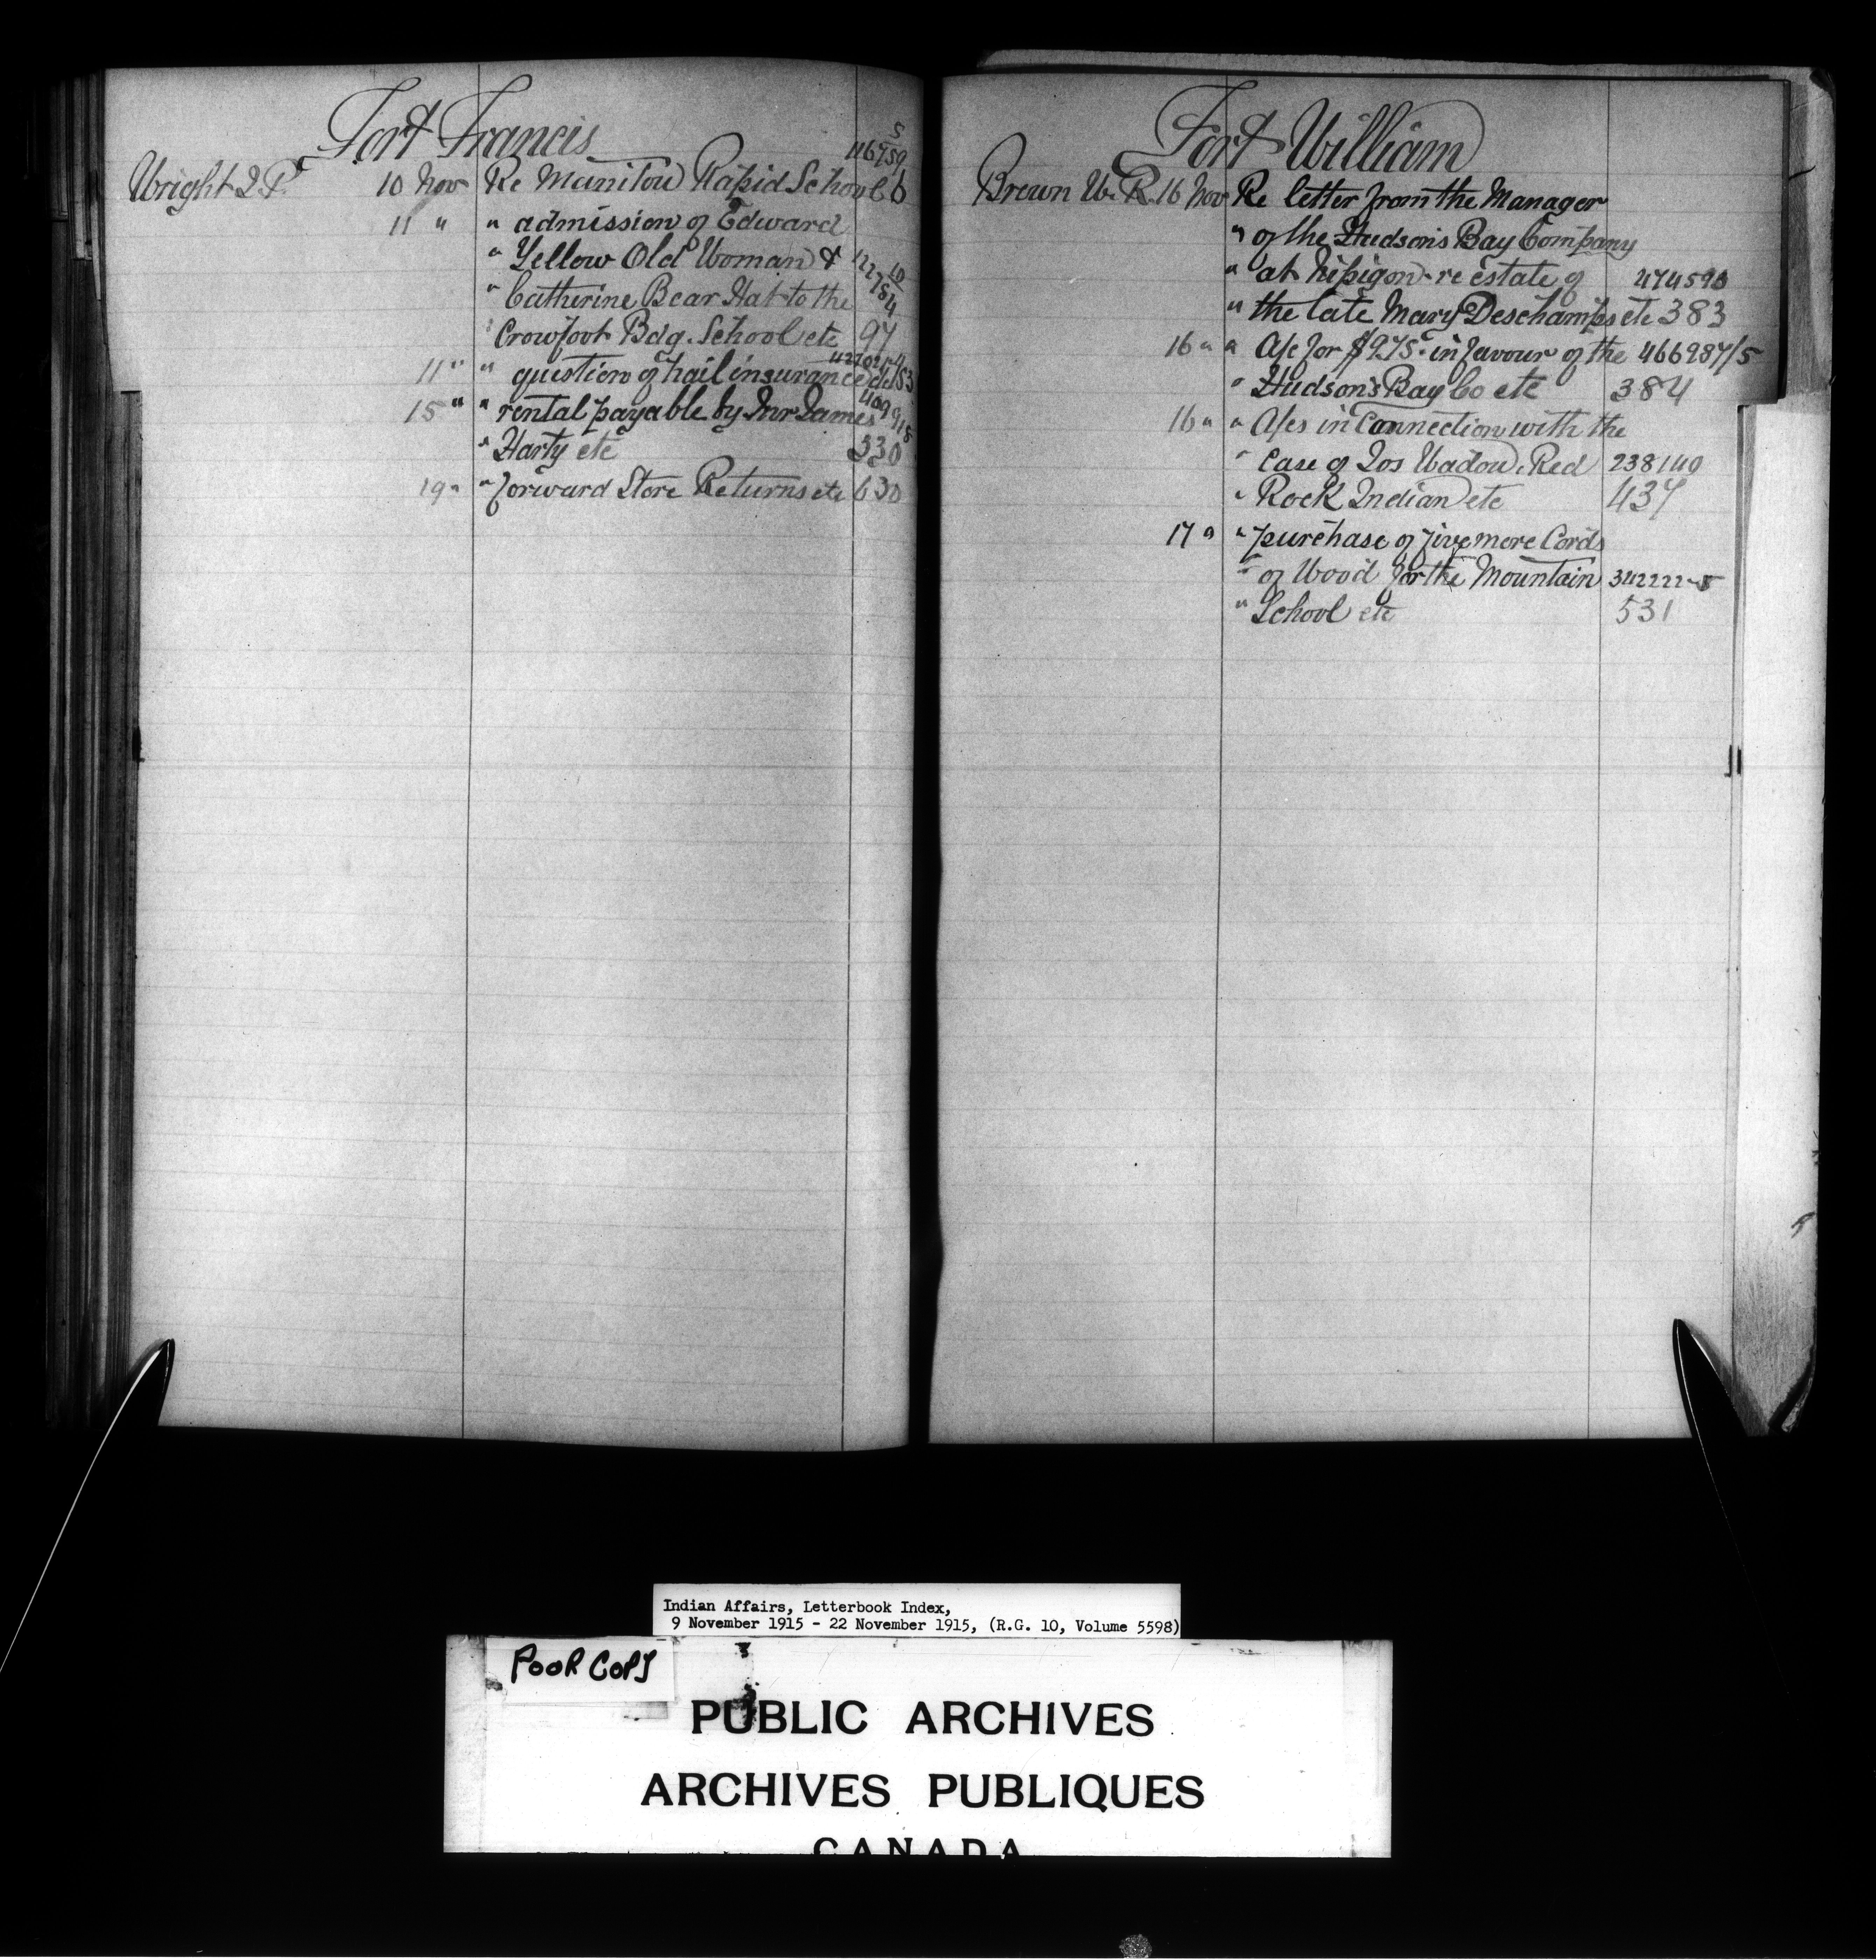 Fort Francis
Wright J. P. 10 Nov Re Manitou Rapid School 6
11 " " admission of Edward
" Yellow Old Woman &
" Catherine Bear Hat to the
" Crowfoot Bdg. School etc 97
11 " " question of hail insurance etc 153
15 " " rental payable by Mr James
" Harty etc 530
19 " " forward Store Returns etc 630
Fort William
Brown W. R. 16 Nov Re letter from the Manager
" of the Hudson's Bay Company
" at Nipigon - re estate of 474590
" the late Mary Deschamps etc 383
16 " " A/c for $9.75 in favour of the 466987/5
" Hudson's Bay Co etc 384
16 " " A/cs in Connection with the
" Case of Jos Wadow, Red 238140
" Rock Indian etc 437
17 " " purchase of five more Cords
" of Wood for the Mountain 342222-5
" School etc 531
Indian Affairs, Letterbook Index,
9 November 1915 - 22 November 1915, (R.G. 10, Volume 5598)
POOR COPY
PUBLIC ARCHIVES
ARCHIVES PUBLIQUES
CANADA